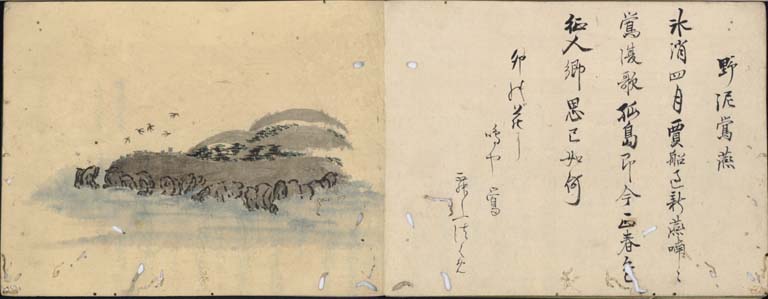 野泥鶯燕
氷消四月賈船過新燕喃〻
鶯復歌孤島即今正春色
征人郷思已如何
卯の花に
鳴や鶯